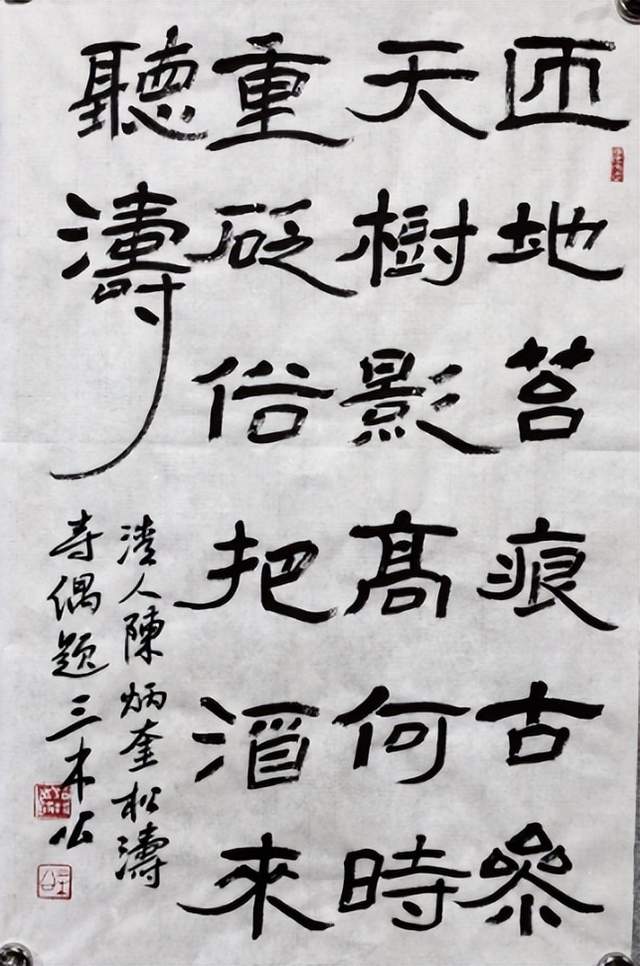 匝地苔痕古參
天樹影高何時
重砭俗把酒來
聽濤
清人陳炳奎松濤
寺偶題三木公